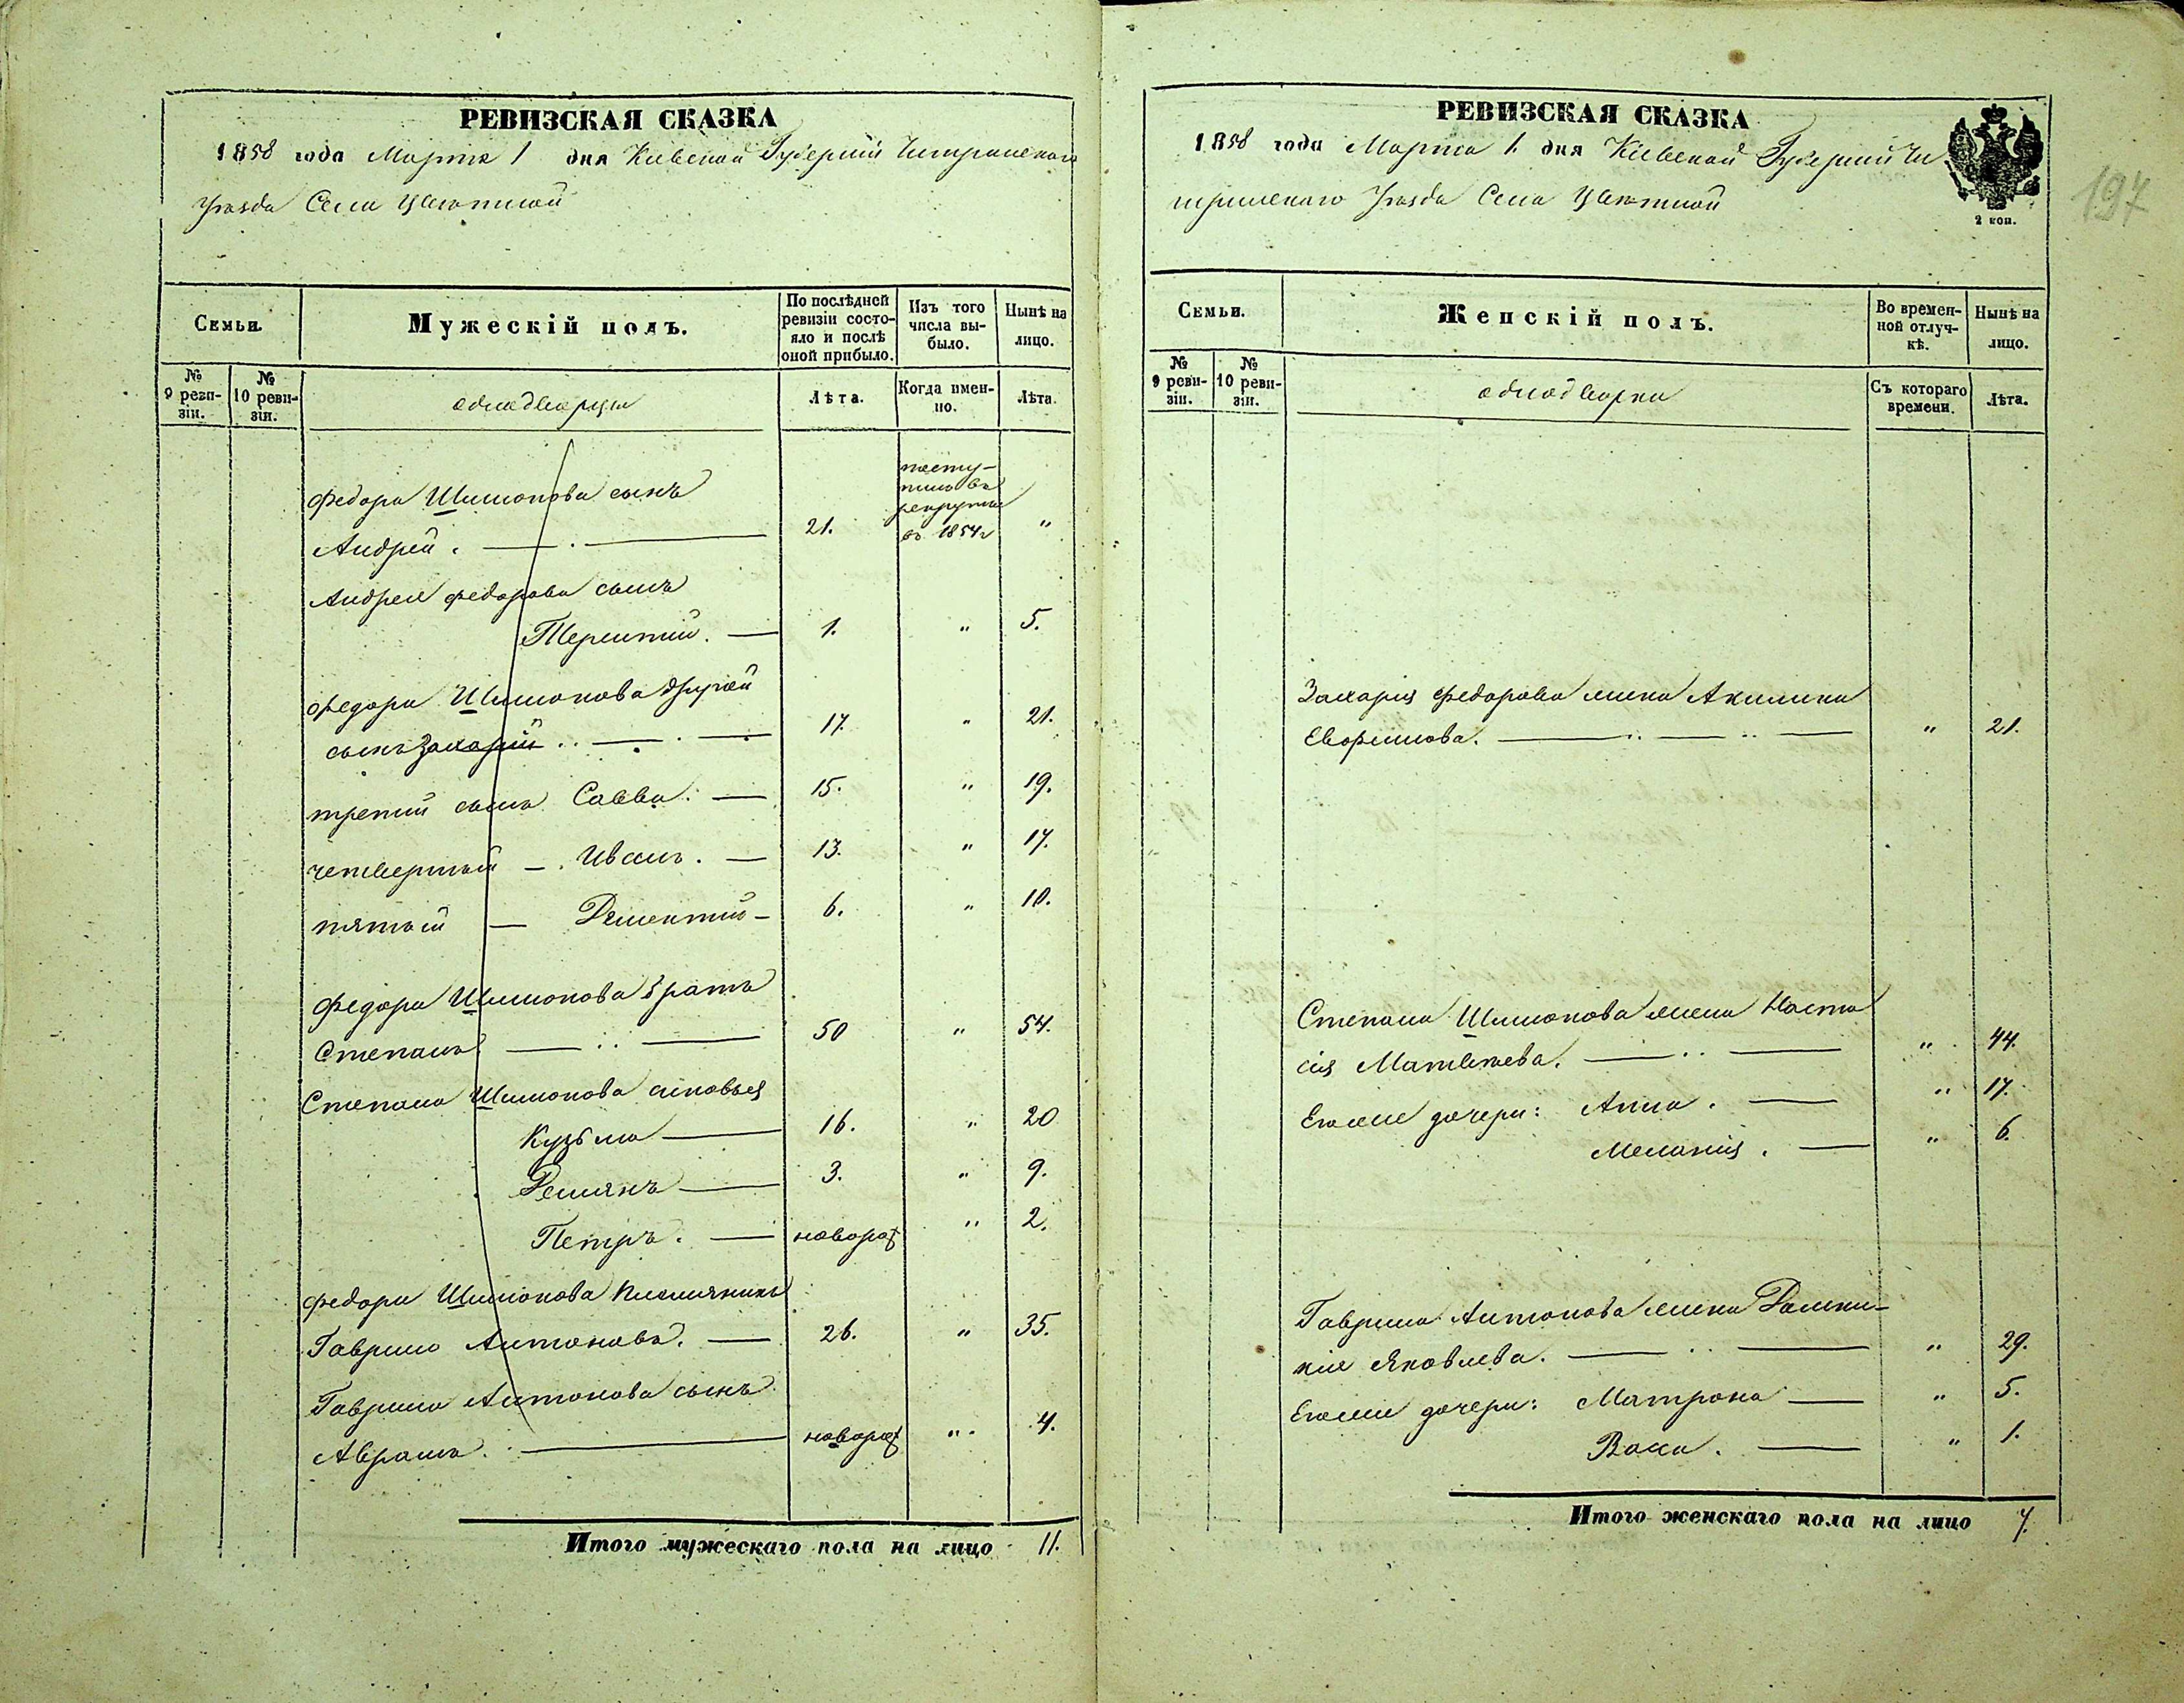 РЕВИЗСКАЯ СКАЗКА
1858 года Марта 1 дня Киевской Губернии Чигринского
Уезда Села Цветной
Семьи.
Мужескій полъ.
По послѣдней ревизіи состояло и послѣ оной прибыло.
Изъ того числа выбыло.
Нынѣ на лицо.
№ 9 ревизіи.
№ 10 ревизіи.
однодворцы
Лѣта.
Когда именно.
Лѣта.
Федора Шимонова сынъ
Андрей. 21. поступилъ в рекруты въ 1854 г "
Андрея Федорова сынъ
Терентий. 1. " 5.
Федора Шимонова другой
сынъ Захарій 17. " 21.
третий сынъ Савва. 15. " 19.
четвертый — Иванъ. 13. " 17.
пятый — Дементий 6. " 10.
Федора Шимонова братъ
Степанъ 50 " 54.
Степана Шимонова сыновья
Кузьма 16. " 20
Демянъ 3. " 9.
Петръ. новорож " 2.
Федора Шимонова племянникъ
Гаврило Антоновъ. 26. " 35.
Гаврила Антонова сынъ
Аврамъ. новорож " 4.
Итого мужескаго пола на лицо 11.
РЕВИЗСКАЯ СКАЗКА
1858 года Марта 1. дня Киевской Губернии Чи
гринского Уезда Села Цветной
2 коп.
197
Семьи.
Женскій полъ.
Во временной отлучкѣ.
Нынѣ на лицо.
№ 9 ревизіи.
№ 10 ревизіи.
однодворки
Съ котораго времени.
Лѣта.
Захарія Федорова жена Акилина
" 21.
Степана Шимонова жена Наста
сія Матвеева. " 44.
Его же дочери: Анна. " 17.
Меланія. " 6.
Гаврила Антонова жена Домни
кія Яковлева. " 29.
Его же дочери: Матрона " 5.
" 1.
Итого женскаго пола на лицо 7.